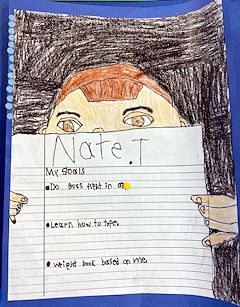 Nate.T
My goals
•Do Boss fight in
•Learn how to type.
•wright book based on me.